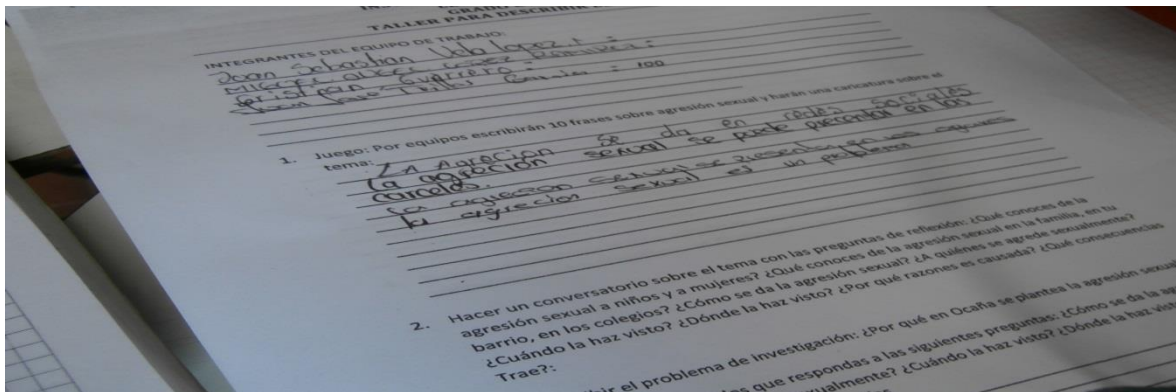 GRADO
TALLER PARA DESCRIBIR
INTEGRANTES DEL EQUIPO DE TRABAJO:
Joan Sebastian
100
1. Juego: Por equipos escribirán 10 frases sobre agresión sexual y harán una caricatura sobre el
tema: La Agrecion se da en redes sociales
la agrecion sexual se puede precentar en las
carceles.
La agrecion sexual se
la agrecion sexual es un problema
2. Hacer un conversatorio sobre el tema con las preguntas de reflexión: ¿Qué conoces de la
agresión sexual a niños y a mujeres? ¿Qué conoces de la agresión sexual en la familia, en tu
barrio, en los colegios? ¿Cómo se da la agresión sexual? ¿A quiénes se agrede sexualmente?
¿Cuándo la haz visto? ¿Dónde la haz visto? ¿Por qué razones es causada? ¿Qué consecuencias
Trae?:
el problema de investigación: ¿Por qué en Ocaña se plantea la agresión sexual
que respondas a las siguientes preguntas: ¿Cómo se da la
¿Cuándo la haz visto? ¿Dónde la haz